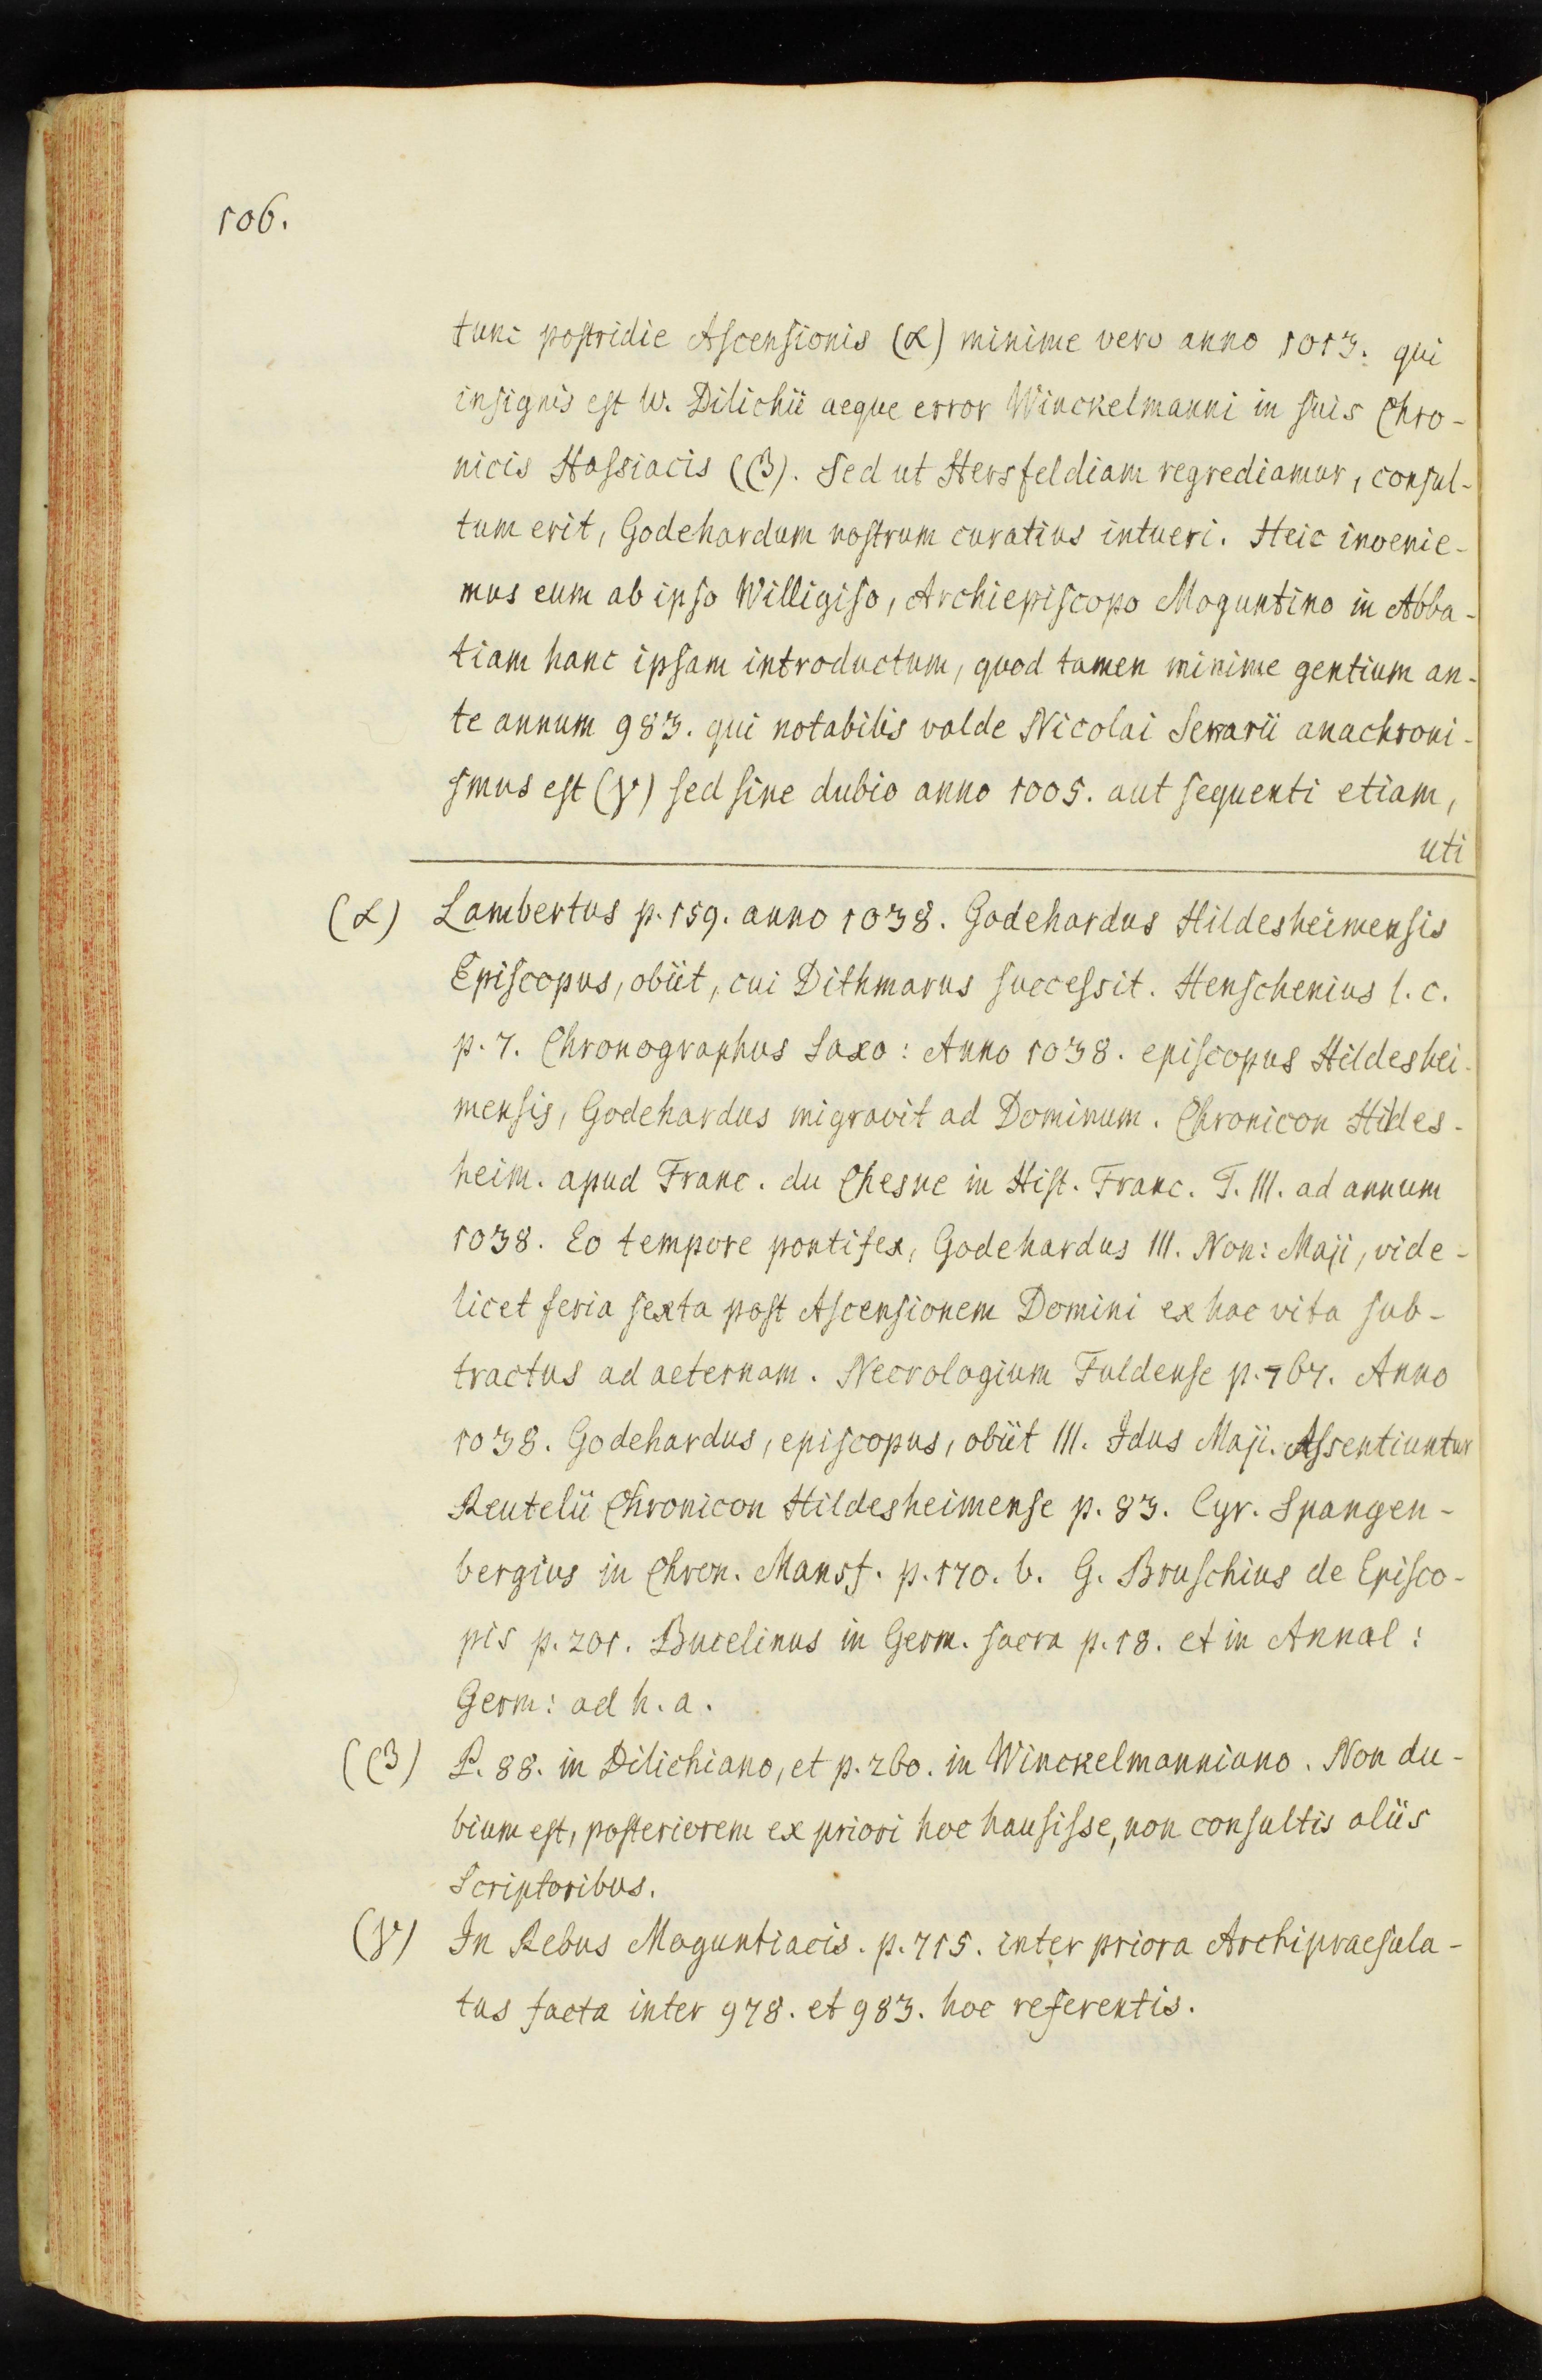 106.
tunc postridie Ascensionis (α) minime vero anno 1013. qui
insignis est W. Dilichii aeque error Winckelmanni in suis Chro-
nicis Hassiacis (β). Sed ut Hersfeldiam regrediamur, consul-
tum erit, Godehardum nostrum curatius intueri. Heic invenie-
mus eum ab ipso Willigiso, Archiepiscopo Moguntino in Abba-
tiam hanc ipsam introductum, quod tamen minime gentium an-
te annum 983. qui notabilis valde Nicolai Serrarii anachroni-
smus est (γ) sed sine dubio anno 1005. aut sequenti etiam,
uti
(α) Lambertus p. 159. anno 1038. Godehardus Hildesheimensis
Episcopus, obiit, cui Dithmarus successit. Henschenius l. c.
p. 7. Chronographus Saxo: Anno 1038. episcopus Hildeshei-
mensis, Godehardus migravit ad Dominum. Chronicon Hildes-
heim. apud Franc. du Chesne in Hist. Franc. T. III. ad annum
1038. Eo tempore pontifex, Godehardus III. Non: Maji, vide-
licet feria sexta post Ascensionem Domini ex hac vita sub-
tractus ad aeternam. Necrologium Fuldense p. 767. Anno
1038. Godehardus, episcopus, obiit III. Idus Maji. Assentiuntur
Reutelii Chronicon Hildesheimense p. 83. Cyr. Spangen-
bergius in Chron. Mansf. p. 170. b. G. Bruschius de Episco-
pis p. 201. Bucelinus in Germ. sacra p. 18. et in Annal:
Germ: ad h. a.
(β) P. 88. in Dilichiano, et p. 260. in Winckelmanniano. Non du-
bium est, posteriorem ex priori hoc hausisse, non consultis aliis
Scriptoribus.
(γ) In Rebus Moguntiacis. p. 715. inter priora Archipraesula-
tus facta inter 978. et 983. hoc referentis.